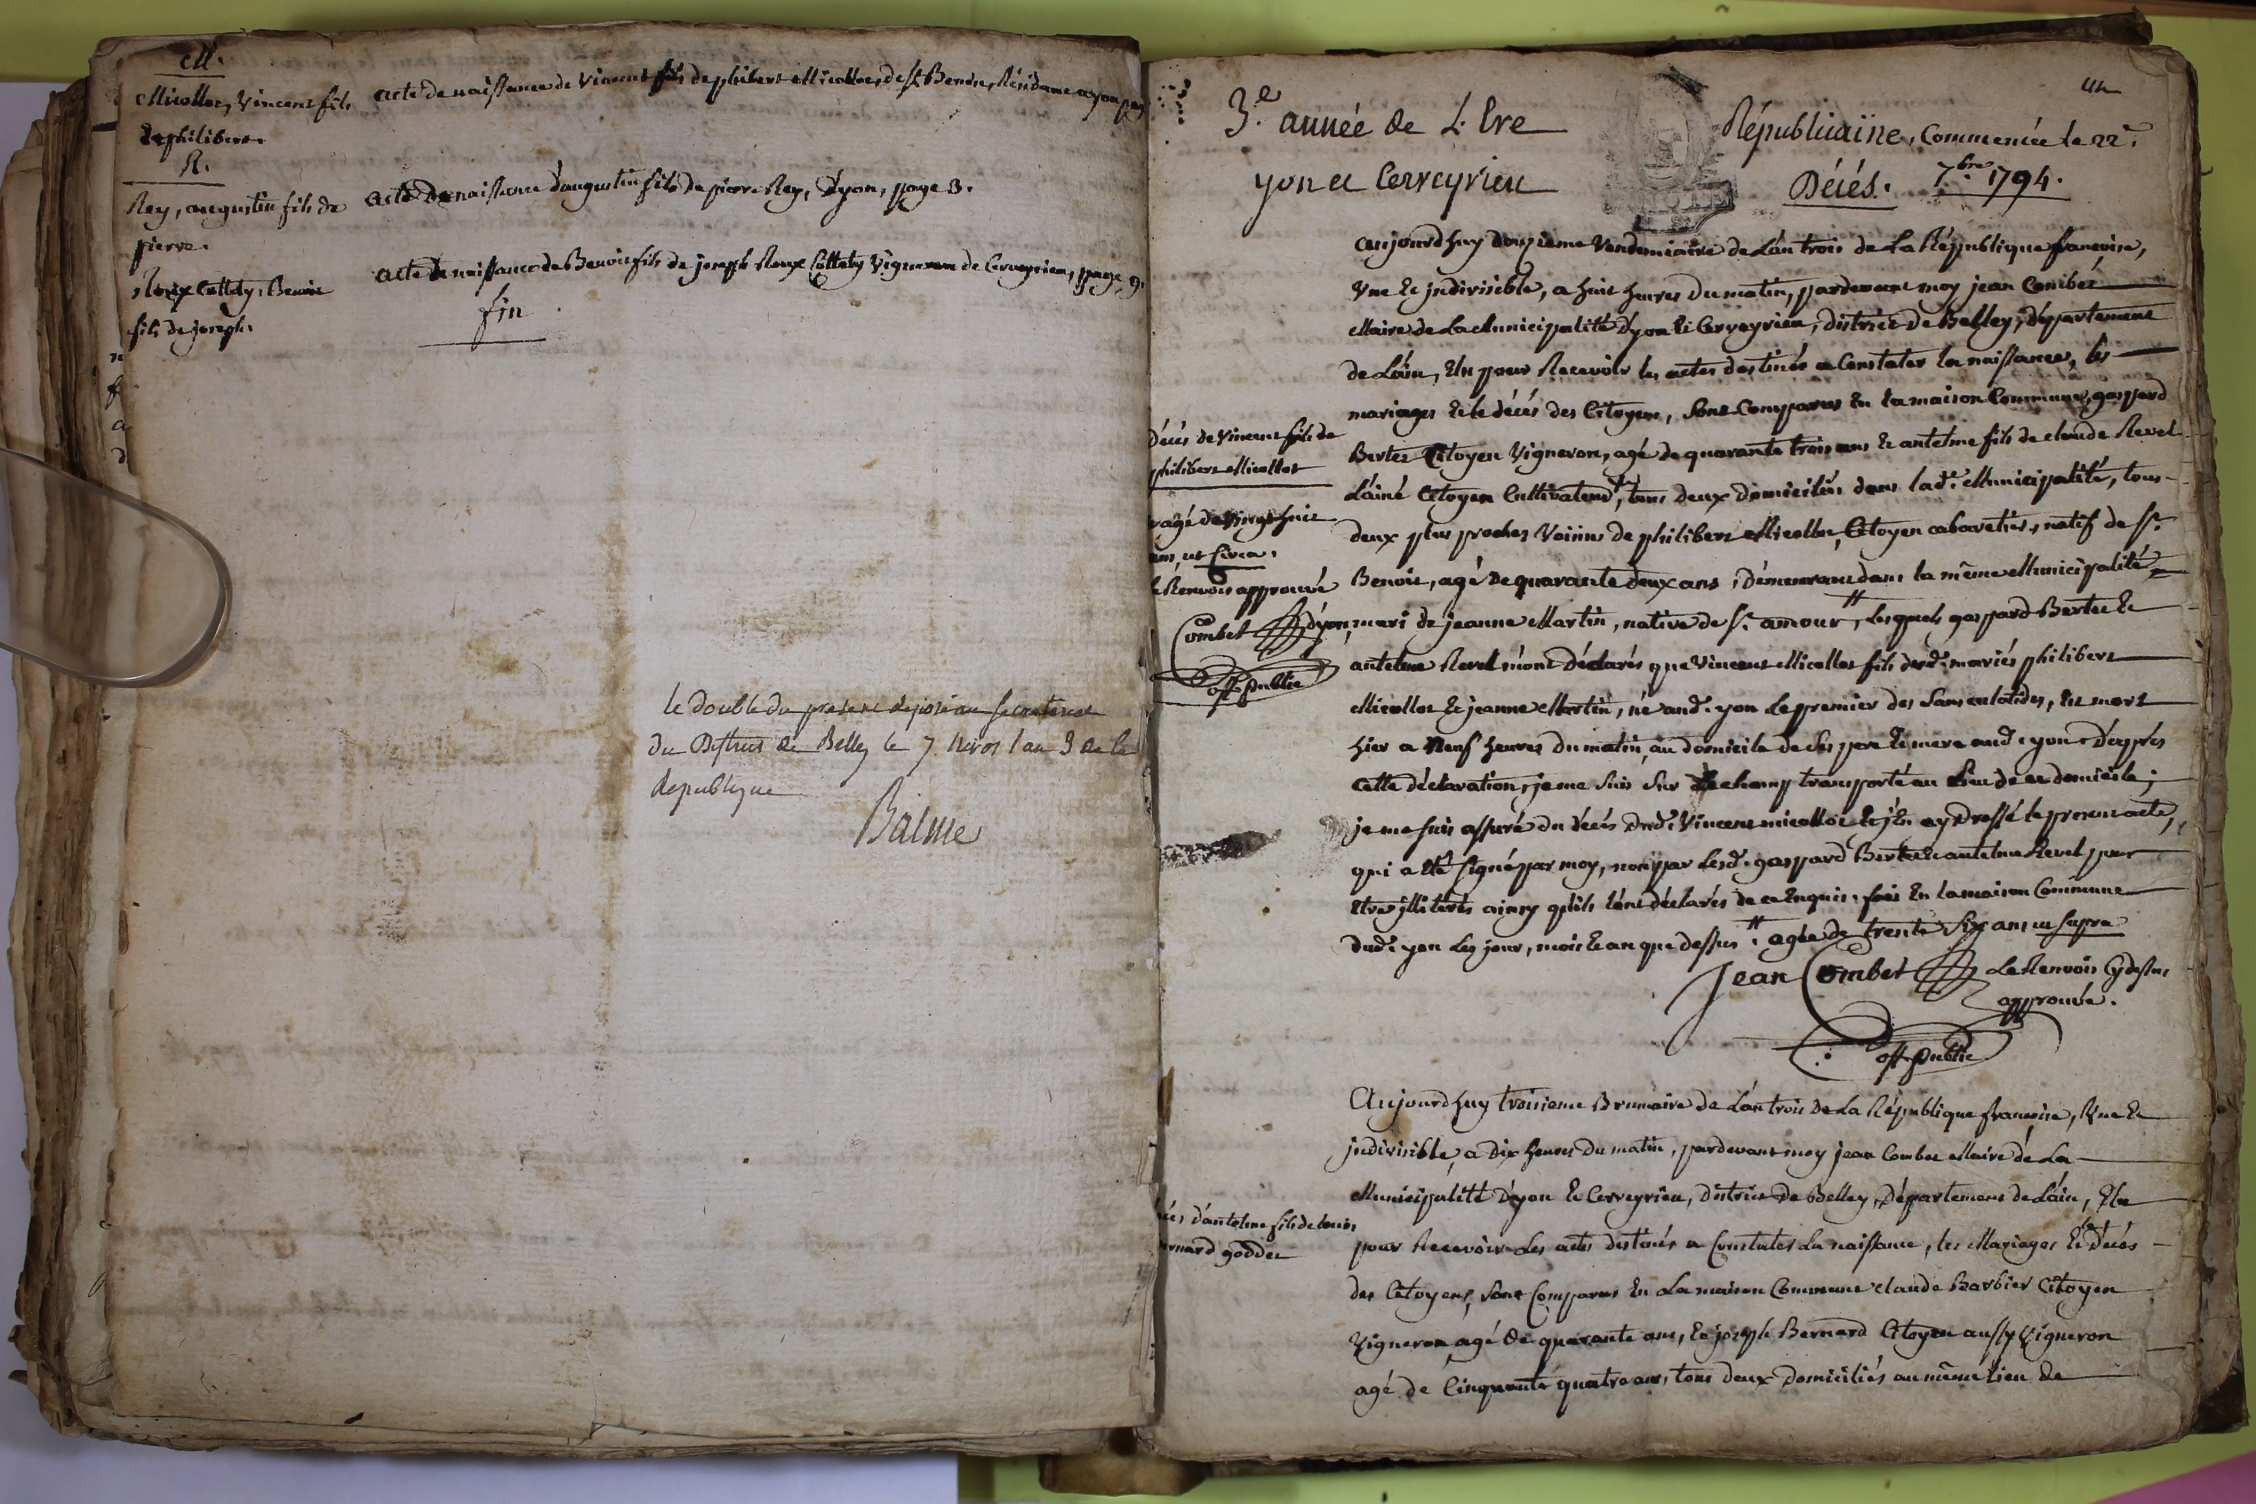 M.
Micollet, Vincent fils
de philibert.
acte de naissance de Vincent fils de philibert Micollet, de St. Benoit, Résidant a yon, page
R.
Rey, augustin fils de
pierre.
acte de naissance d'augustin fils de pierre Rey, d'yon, page 3.
Roux Collety, Benoit
fils de joseph.
acte de naissance de Benoit fils de joseph Roux Collety Vigneron de Cerveyrieu, page 9.
fin
le double du present deposé au secretariat
du District de Belley le 7 Nivos l'an 3 de la
Republique
Balme
3.e année de L'Ere Républicaine, Commencée le 22.e
yon et Cerveyrieu Décés. 7.bre 1794.
aujourdhuy douzieme Vendemiaire de L'an trois de La République francoise,
Une et jndivisible, a huit heures du matin, pardevant moy jean Combet
Maire de La Municipalité d'yon et Cerveyrieu, district de Belley, département
de L'ain, Elu pour Recevoir les actes destinés a Constater la naissance, les
mariages et le décés des Citoyens, Sont Comparus En la maison Commune, gaspard
Bertet Citoyen Vigneron, agé de quarante trois ans et antelme fils de claude Revel
L'ainé Citoyen Cultivateur, tous deux domiciliés dans lad.e Municipalité, tous
deux plus proches Voisins de philibert Micollet, Citoyen cabaretier, natif de St.
Benoit, agé de quarante deux ans, démeurant dans la même Municipalité
d'yon, mari de jeanne Martin, native de St. amour, Lesquels gaspard Bertet et
antelme Revel m'ont déclarés que Vincent Micollet fils desd. mariés philibert
Micollet et jeanne Martin, né aud. yon Le premier des Sansculotides, Est mort
hier a Neuf heures du matin, au domicile de ses pere et mere aud. yon. D'après
cette déclaration, je me suis Sur Le champ transporté au Lieu de ce domicile;
je me suis assuré du décés dud. Vincent micollet et j'En ay dressé le present acte,
qui a eté signé par moy, non par Lesd. gaspard Bertet et antelme Revel pour
Etre jlliterés ainsy qu'ils L'ont déclarés de ce Enquis. fait En la maison Commune
dud. yon Les jour, mois et an que dessus. agée de trente Six ans ut supra
Jean Combet Le Renvois Cy dessus
approuvé.
off. public
Décés de Vincent fils de
philibert Micollet
agé de Vingt huit
ans, ut circa.
le Renvois approuvé
Combet
off. public
Aujourdhuy troisieme Brumaire de L'an trois de La République francoise, Une et
jndivisible, a Dix heures du matin, pardevant moy jean Combet Maire de La
Municipalité d'yon et Cerveyrieu, district de Belley, Département de L'ain, Elu
pour Recevoir Les actes destinés a Constater La naissance, les Mariages et le Décés
des Citoyens, Sont Comparus En La maison Commune claude Barbier Citoyen
Vigneron agé de quarante ans, et joseph Bernard Citoyen aussy Vigneron
agé de Cinquante quatre ans, tous deux Domiciliés au même Lieu de
d'antelme fils de Louis
Bernard goddet